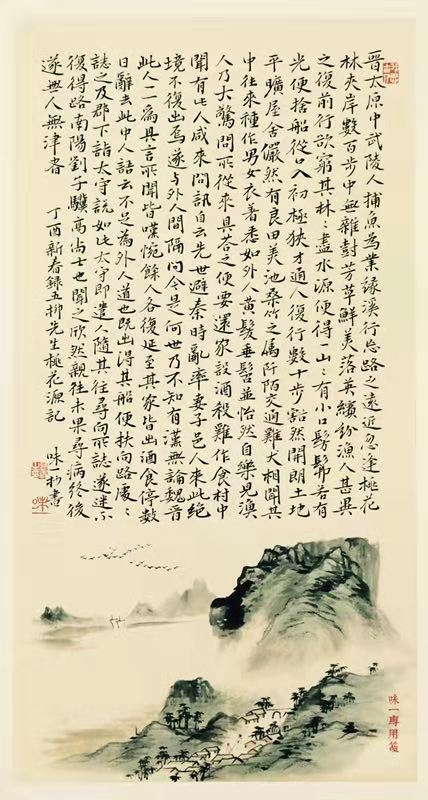 晉太原中武陵人捕魚為業緣溪行忘路之遠近忽逢桃花
林夾岸數百步中無雜樹芳草鮮美落英繽紛漁人甚異
之復前行欲窮其林〻盡水源便得一山〻有小口髣髴若有
光便捨船從口入初極狹才通人復行數十步豁然開朗土地
平曠屋舍儼然有良田美池桑竹之属阡陌交通雞犬相聞其
中往來種作男女衣著悉如外人黃髮垂髫並怡然自樂見漁
人乃大驚問所從來具荅之便要還家設酒殺雞作食村中
聞有此人咸來問訊自云先世避秦時亂率妻子邑人來此絕
境不復出焉遂与外人間隔問今是何世乃不知有漢無論魏晉
此人一〻為具言所聞皆嘆惋餘人各復延至其家皆出酒食停數
日辭去此中人語云不足為外人道也既出得其船便扶向路處〻
誌之及郡下詣太守說如此太守即遣人隨其往尋向所誌遂迷不
復得路南陽劉子驥高尚士也聞之欣然親往未果尋病終後
遂無人津者 丁酉新春錄五柳先生桃花源記 味一抄書
味一專用箋